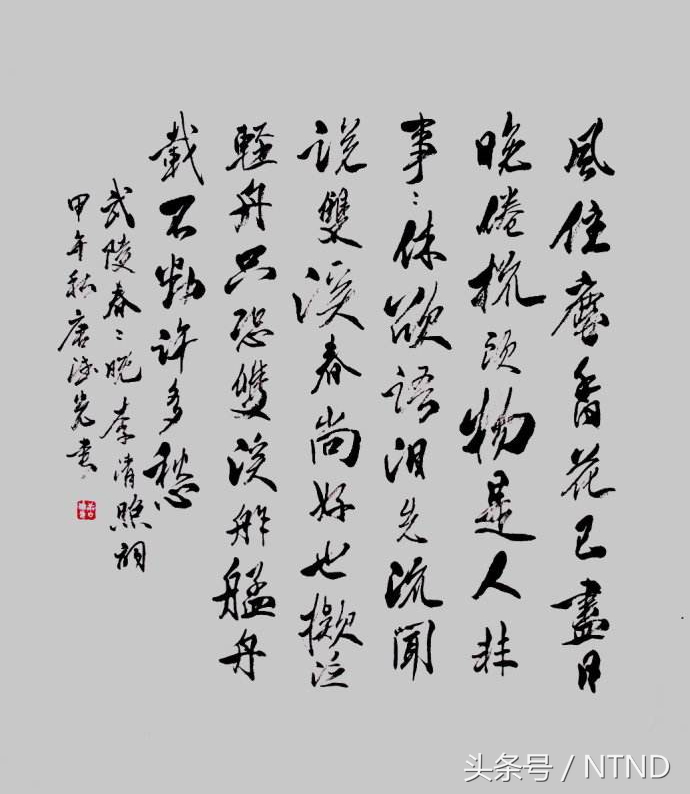 風住塵香花已盡日
晚倦梳頭物是人非
事〻休欲語泪先流聞
說雙溪春尚好也擬泛
輕舟只恐雙溪舴艋舟
載不動許多愁
武陵春〻晚李清照詞
甲午秋唐書
头条号 / NTND